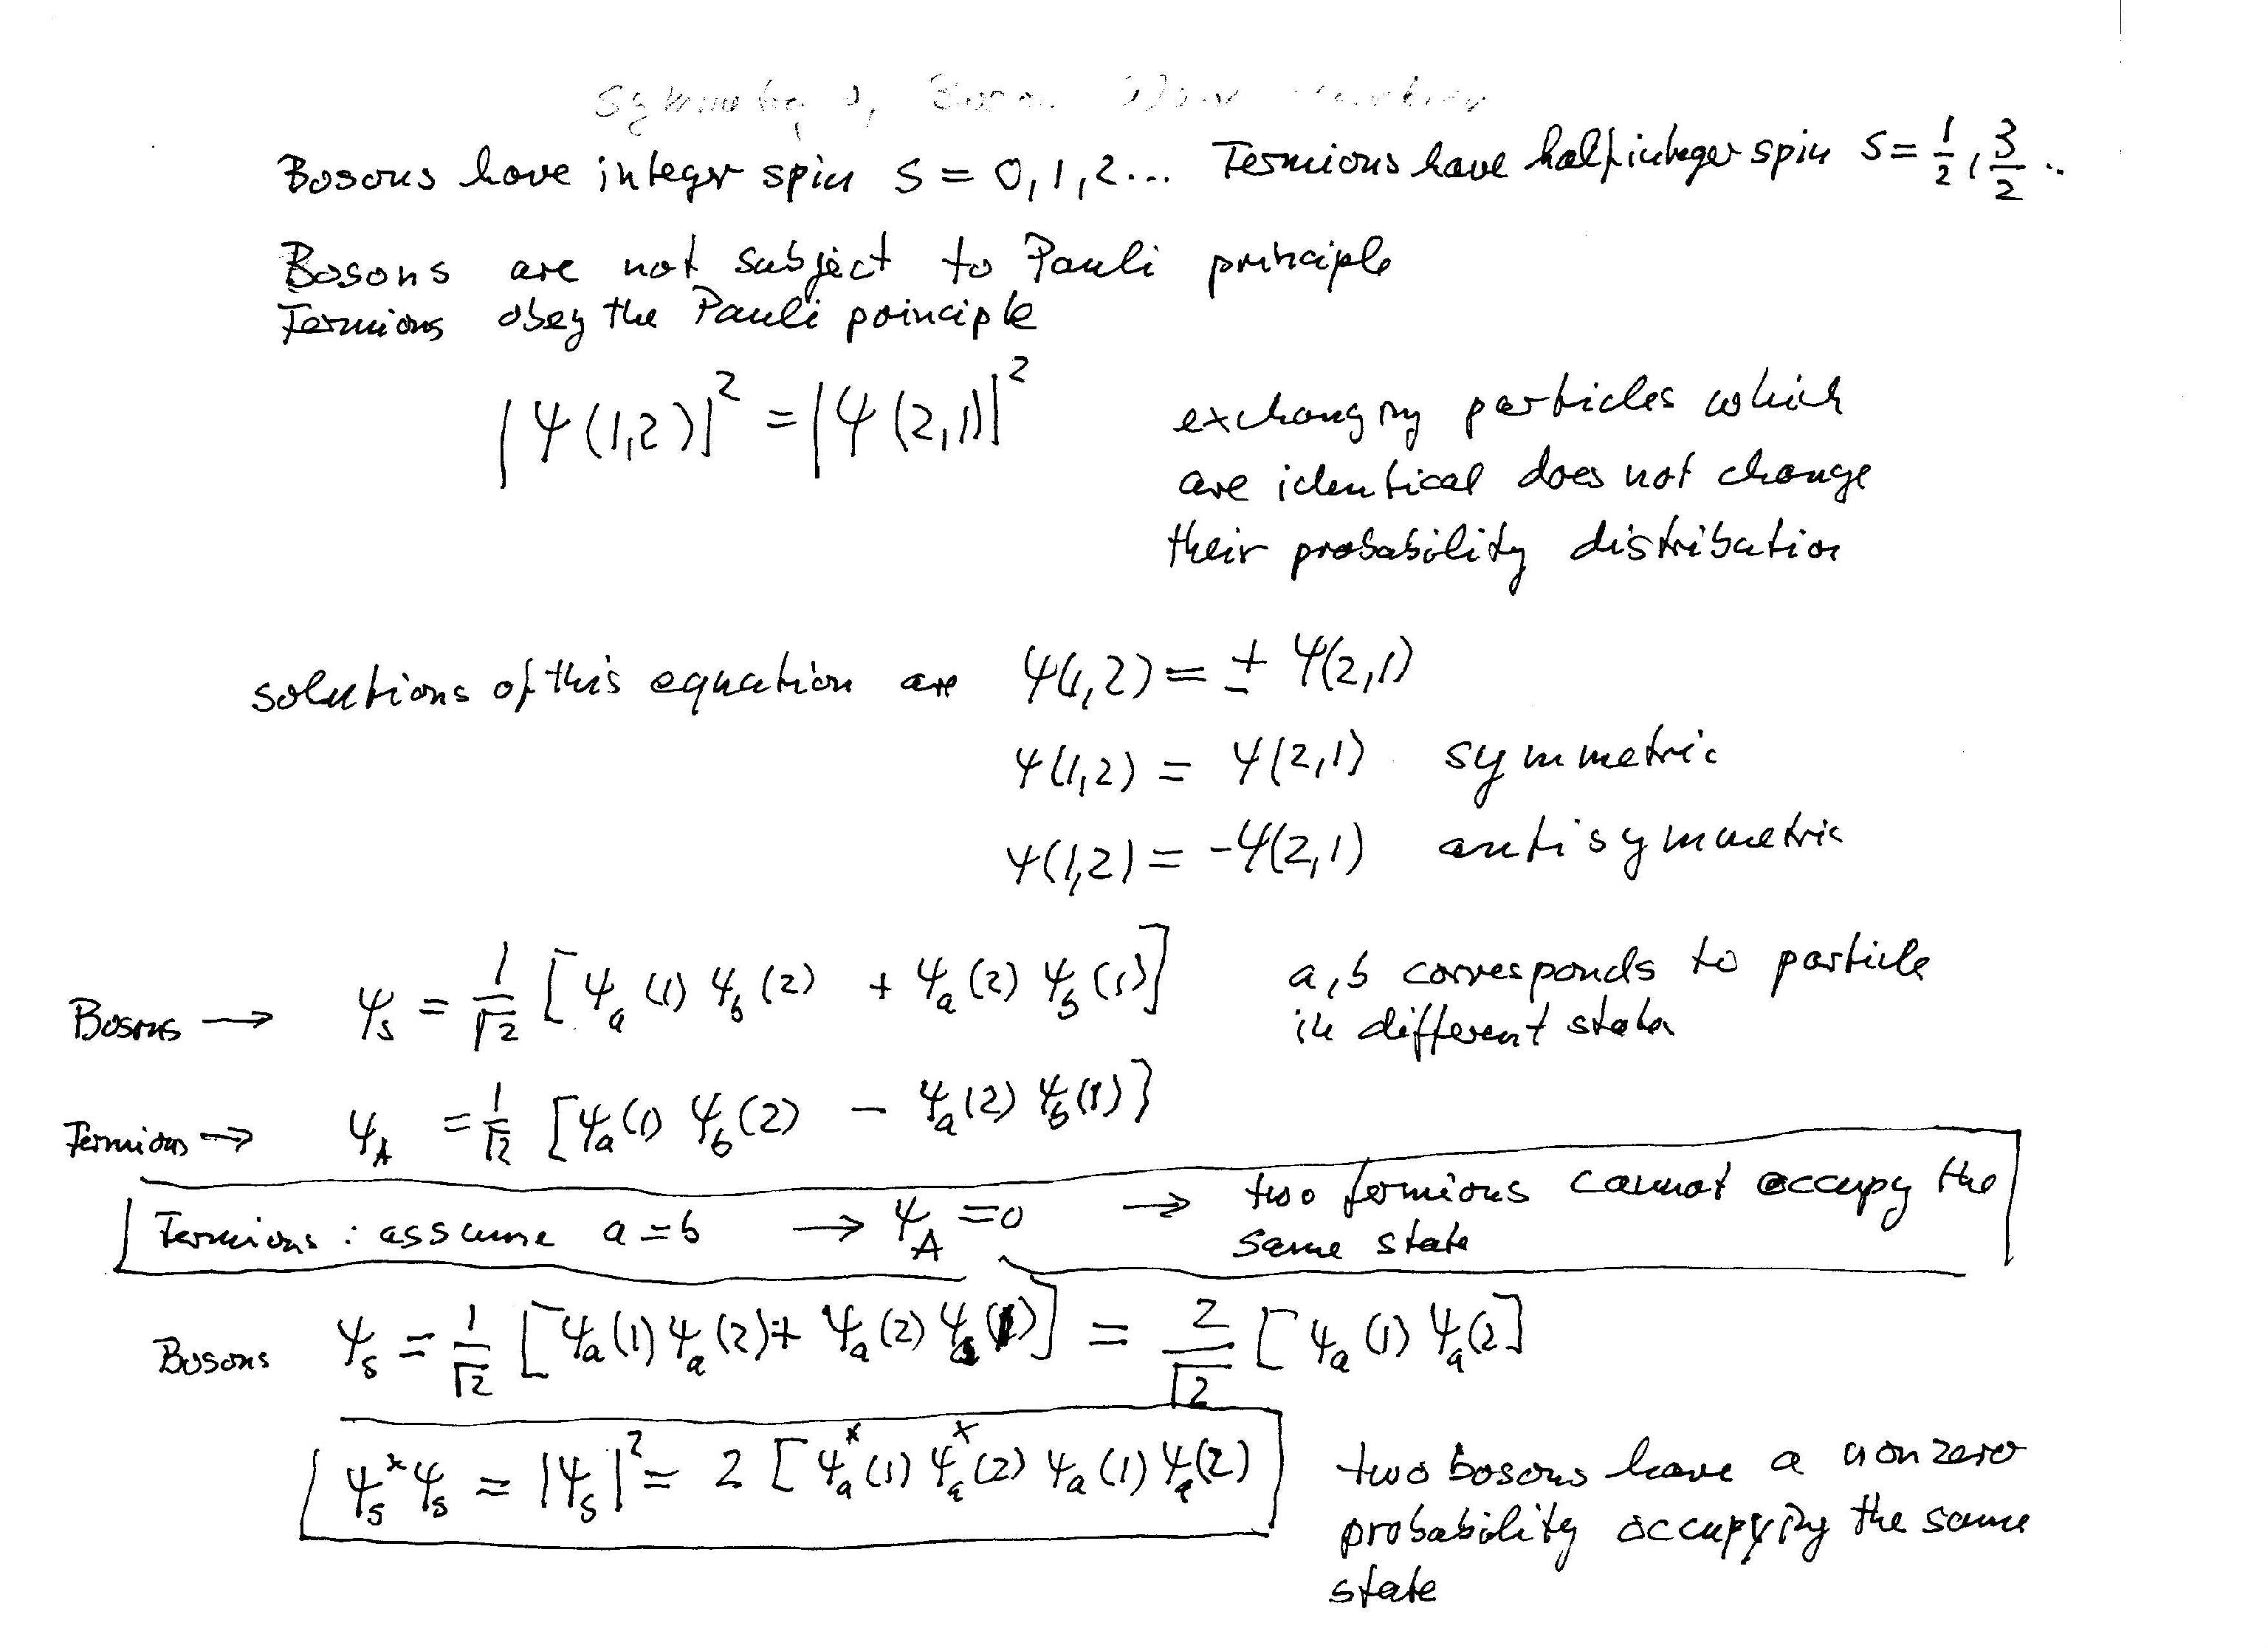 Bosons have integer spin S = 0, 1, 2... Fermions have half integer spin S = 1/2, 3/2 ..
Bosons are not subject to Pauli principle
Fermions obey the Pauli principle
|Ψ(1,2)|² = |Ψ(2,1)|²
exchanging particles which
are identical does not change
their probability distribution
solutions of this equation are Ψ(1,2) = ± Ψ(2,1)
Ψ(1,2) = Ψ(2,1) symmetric
Ψ(1,2) = -Ψ(2,1) antisymmetric
Bosons → Ψ_S = 1/√2 [Ψ_a(1) Ψ_b(2) + Ψ_a(2) Ψ_b(1)]
a, b corresponds to particle
in different states
Fermions → Ψ_A = 1/√2 [Ψ_a(1) Ψ_b(2) − Ψ_a(2) Ψ_b(1)}
Fermions : assume a = b → Ψ_A = 0 → two fermions cannot occupy the
same state
Bosons Ψ_S = 1/√2 [Ψ_a(1) Ψ_a(2) + Ψ_a(2) Ψ_a(1)] = 2/√2 [Ψ_a(1) Ψ_a(2]
Ψ_S* Ψ_S = |Ψ_S|² = 2 [Ψ_a*(1) Ψ_a*(2) Ψ_a(1) Ψ_a(2)
two bosons have a nonzero
probability occupying the same
state